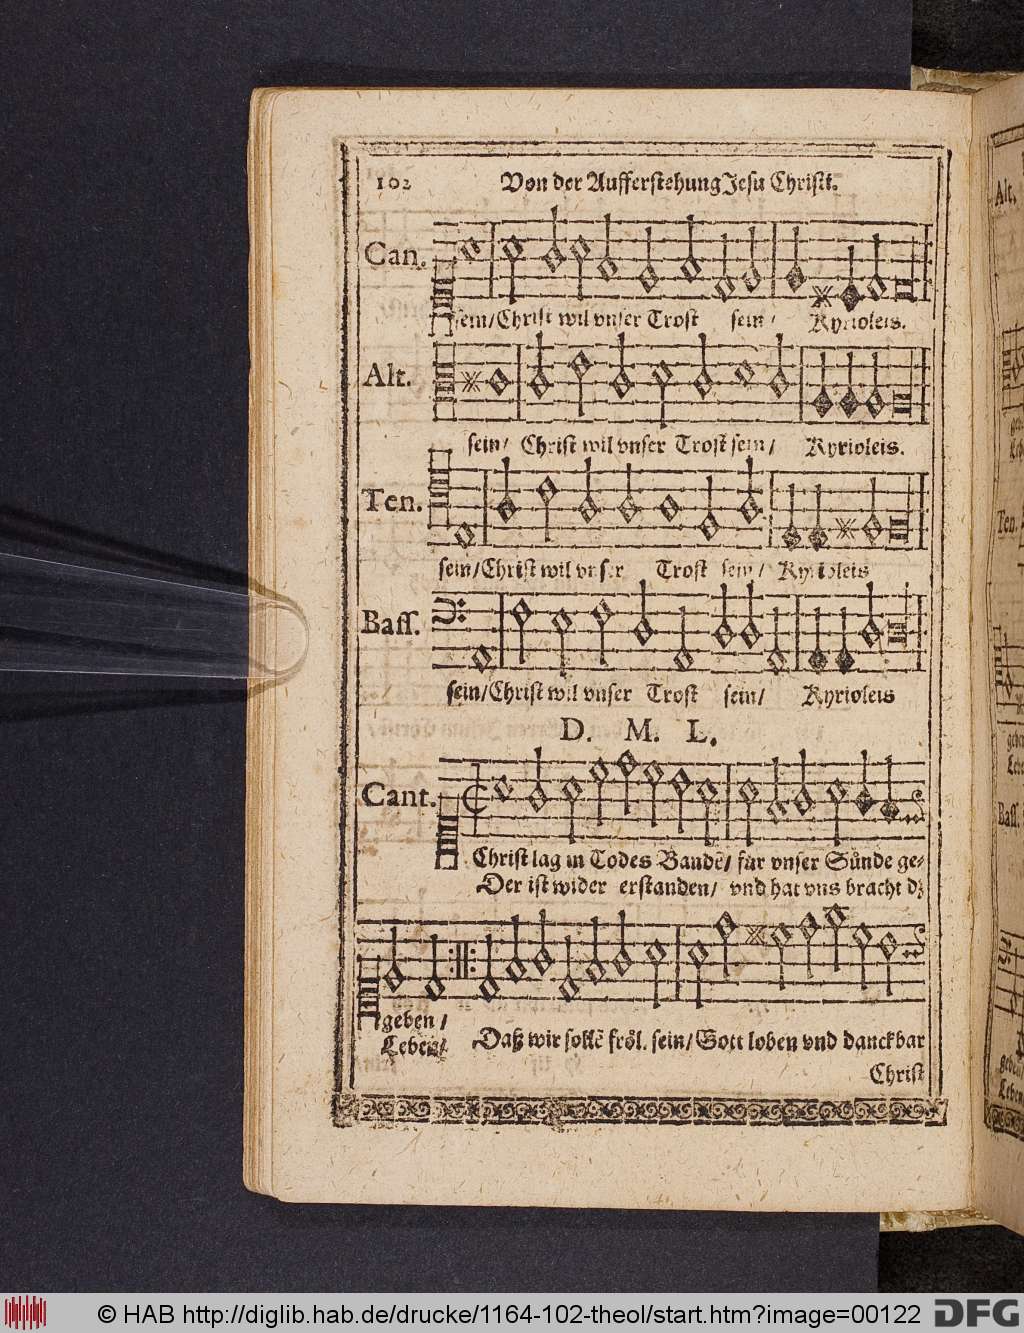 102 Von der Aufferstehung Jesu Christi.
Can.
sein/ Christ wil vnser Trost sein/ Kyrioleis.
Alt.
sein/ Christ wil vnser Trost sein/ Kyrioleis.
Ten.
sein/ Christ wil vnser Trost sein/ Kyrioleis
Bass.
sein/ Christ wil vnser Trost sein/ Kyrioleis
D. M. L.
Cant.
Christ lag in Todes Bandẽ/ für vnser Sünde ge-
Der ist wider erstanden/ vnd hat vns bracht dz
geben/
Leben/ Daß wir sollẽ fröl. sein/ Gott loben vnd danckbar
Christ
Alt.
Ten.
Bass.
© HAB http://diglib.hab.de/drucke/1164-102-theol/start.htm?image=00122 DFG